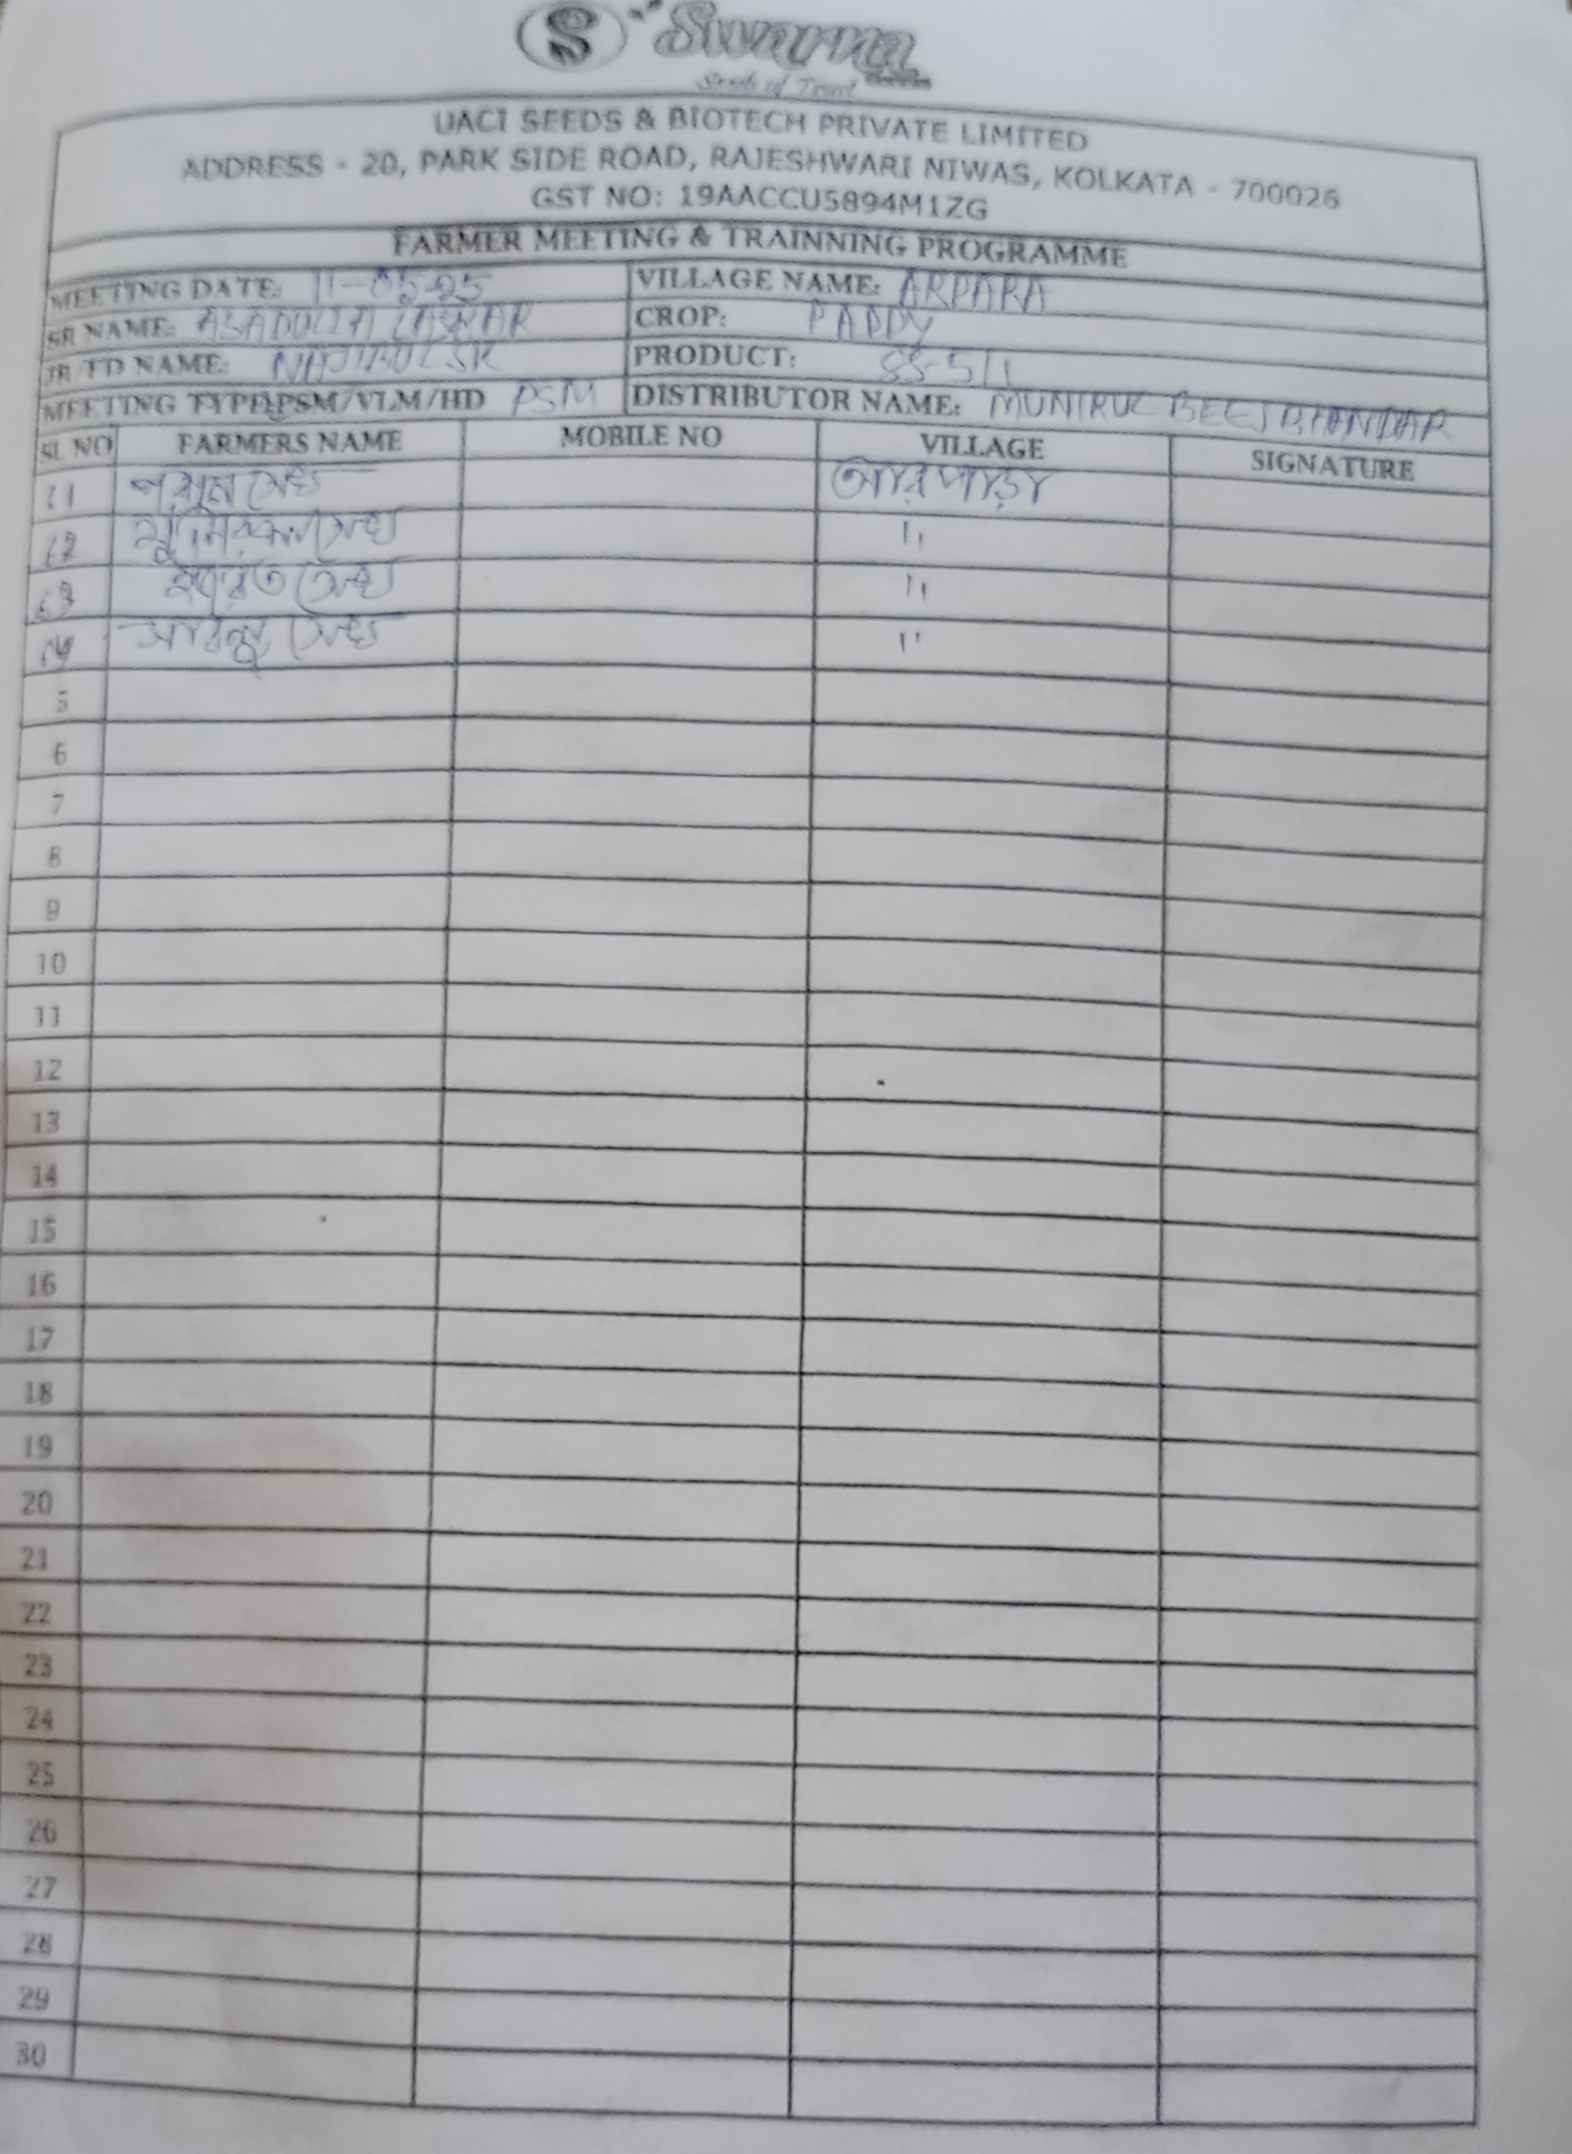 S Swarna
Seeds of Trust
UACI SEEDS & BIOTECH PRIVATE LIMITED
ADDRESS - 20, PARK SIDE ROAD, RAJESHWARI NIWAS, KOLKATA - 700026
GST NO: 19AACCU5894M1ZG
FARMER MEETING & TRAINNING PROGRAMME
MEETING DATE: 11-05-25 VILLAGE NAME: ARPARA
SR NAME: ASADULLA LASKAR CROP: PADDY
JR TD NAME: NAJIRUL SK PRODUCT: SS-511
MEETING TYPE: PSM/VLM/HD PSM DISTRIBUTOR NAME: MUNIRUL BEEJ BHANDAR
SL NO FARMERS NAME MOBILE NO VILLAGE SIGNATURE
সেখ আরপাড়া
সেখ "
সেখ "
সেখ "
5
6
7
8
9
10
11
12
13
14
15
16
17
18
19
20
21
22
23
24
25
26
27
28
29
30